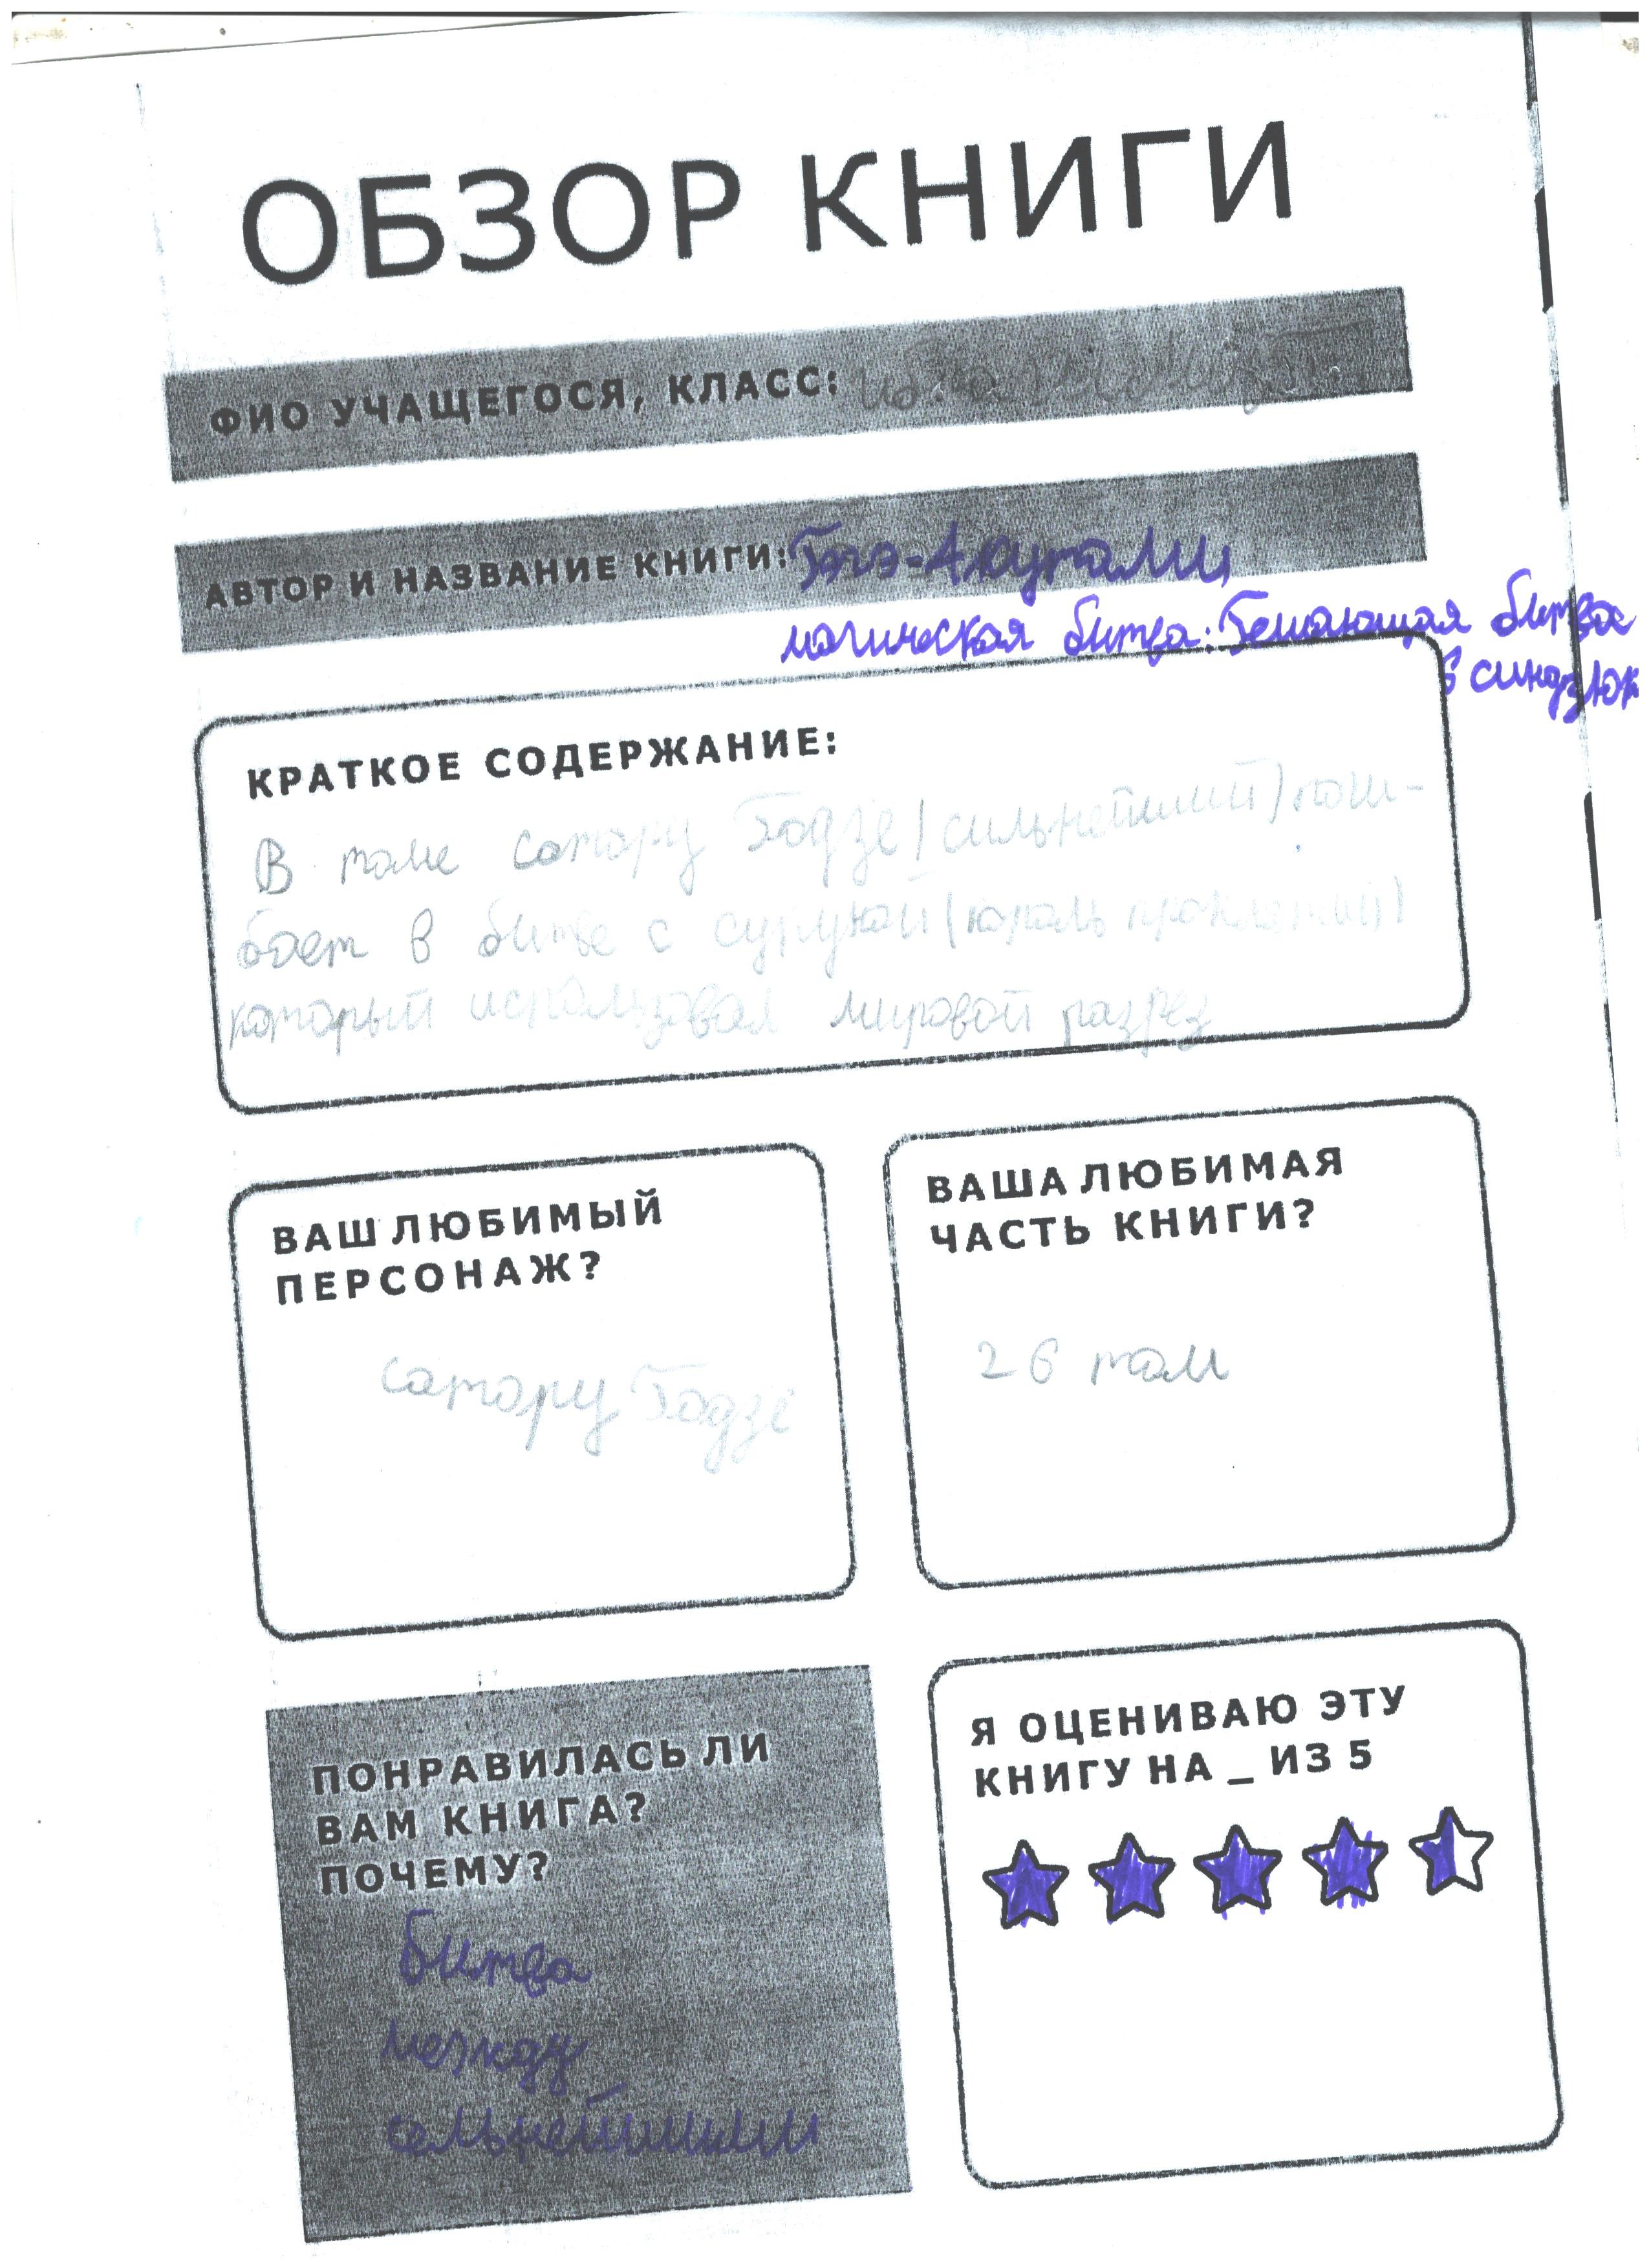 ОБЗОР КНИГИ
ФИО УЧАЩЕГОСЯ, КЛАСС:
АВТОР И НАЗВАНИЕ КНИГИ: Гэгэ-Акутами
магическая битва: Решающая битва
в синдзюк
КРАТКОЕ СОДЕРЖАНИЕ:
В томе сатору Годзе (сильнейший) поги-
бает в битве с сукуной (король проклятий)
который использовал мировой разрез
ВАШ ЛЮБИМЫЙ
ПЕРСОНАЖ?
сатору Годзе
ВАША ЛЮБИМАЯ
ЧАСТЬ КНИГИ?
26 том
ПОНРАВИЛАСЬ ЛИ
ВАМ КНИГА?
ПОЧЕМУ?
битва
между
сельнейшими
Я ОЦЕНИВАЮ ЭТУ
КНИГУ НА _ ИЗ 5